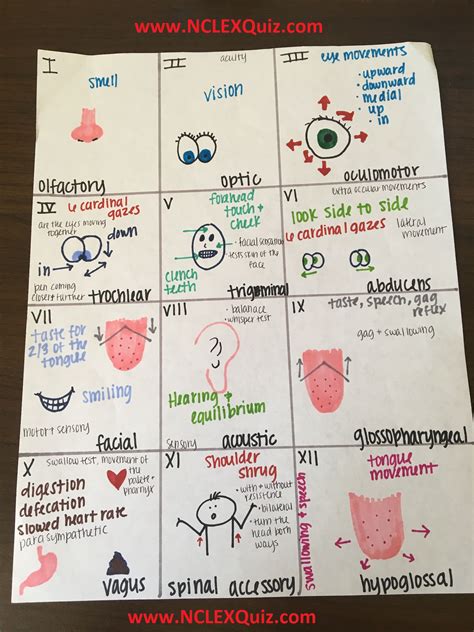 www.NCLEXQuiz.com
I
smell
olfactory
II
acuity
vision
optic
III
eye movements
• upward
• downward
• medial
• up
• in
oculomotor
IV
6 cardinal
gazes
are the eyes moving
together
down
in
pen coming
closer + farther
trochlear
V
forehead
touch +
cheek
• facial sensation
• tests skin of the
face
clench
teeth
trigeminal
VI
extra occular movements
look side to side
6 cardinal gazes
lateral
movement
abducens
VII
taste for
2/3 of the
tongue
smiling
motor + sensory
facial
VIII
• balanace
• whisper test
Hearing +
equilibrium
sensory
acoustic
IX
taste, speech, gag
reflex
gag + swallowing
glossopharyngeal
X
swallow test, movement of
the
palete +
pharnyx
digestion
defecation
slowed heart rate
para sympathetic
vagus
XI
shoulder
shrug
• with + without
resistence
• bilateral
• turn the
head both
ways
spinal accessory
XII
tongue
movement
swallowing + speech
hypoglossal
www.NCLEXQuiz.com